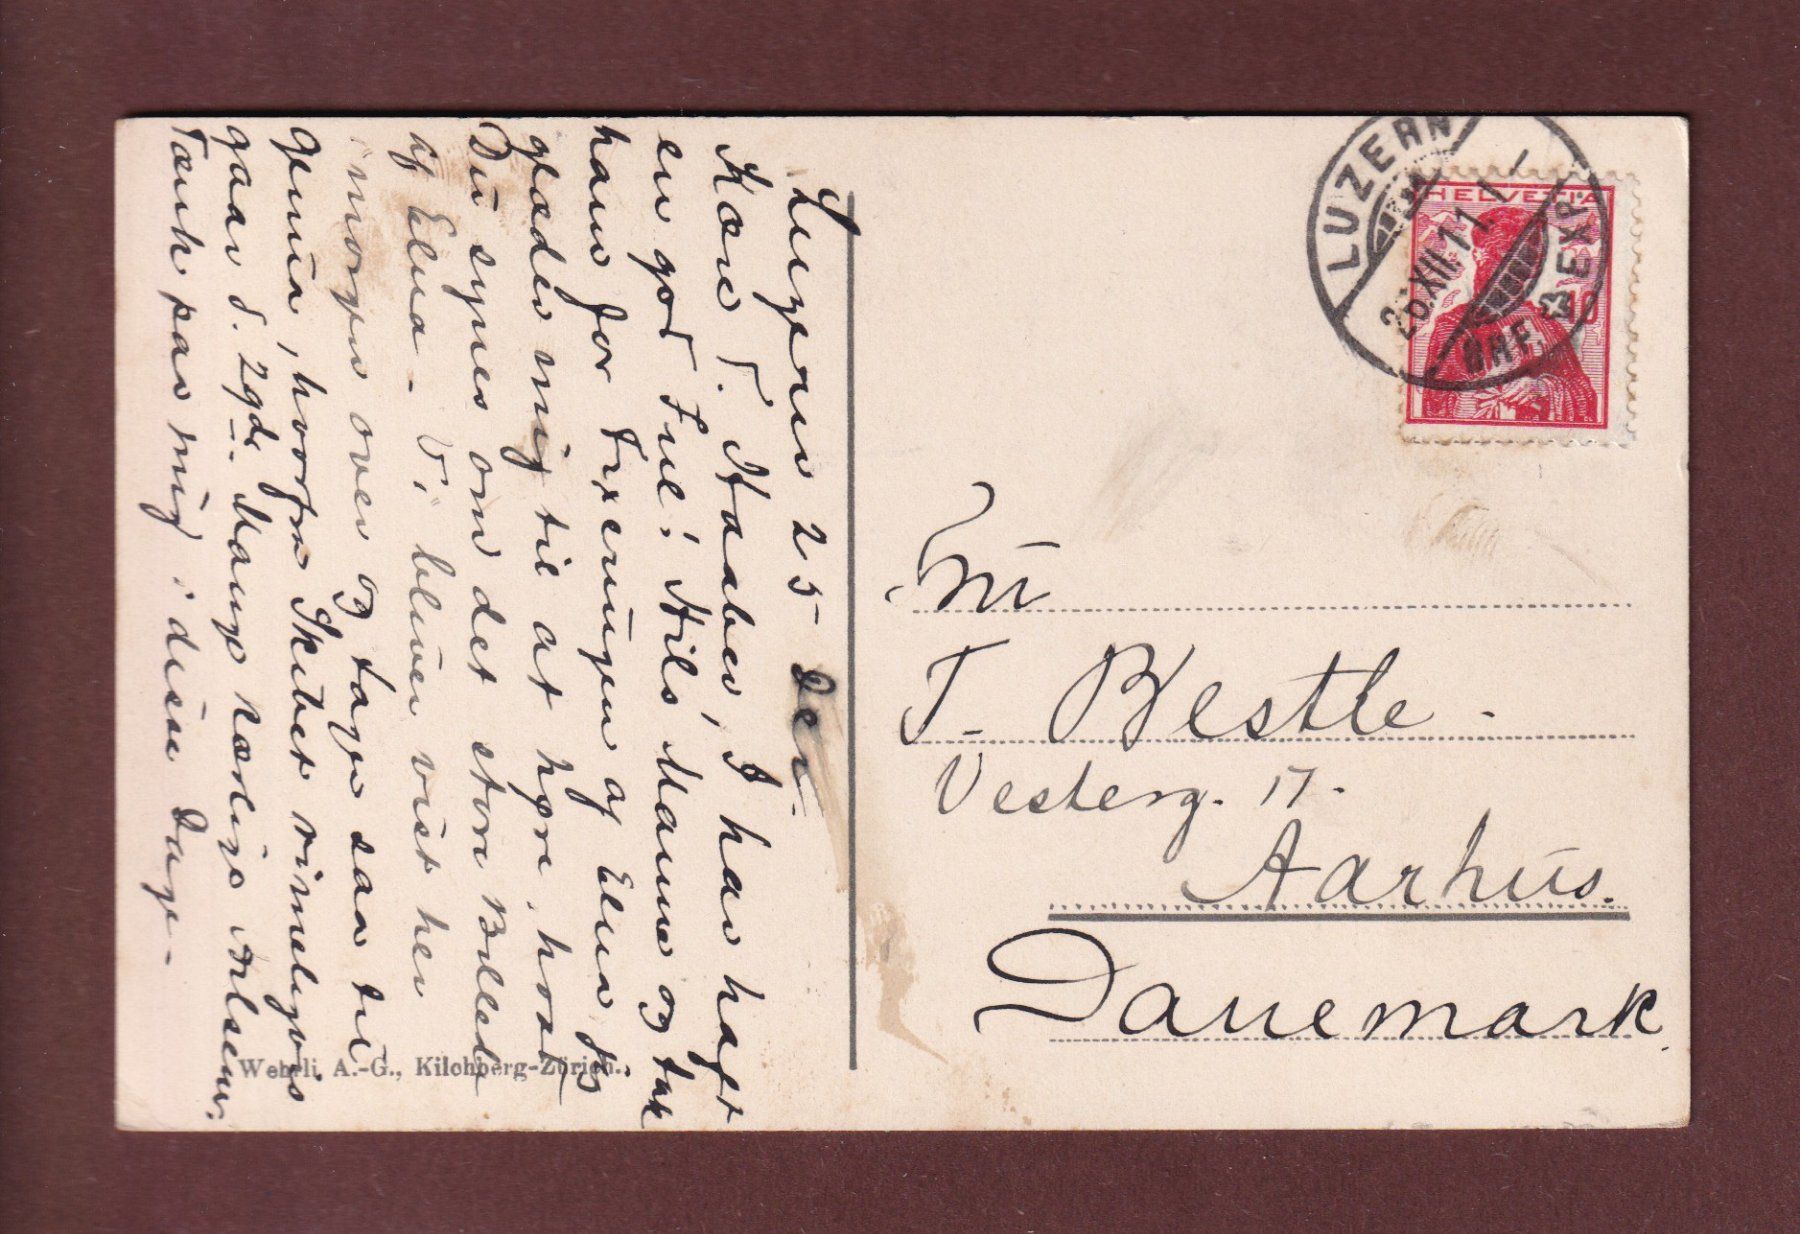 Luzern 25 Dec.
Kære T. Haaber, I har haft
en god Jul! Hils Manne og tak
ham for Fixeringen af Elna jeg
glæder mig til at høre, hvad
Du synes om det store Billede
af Elna - Vi bliver vist her
i morgen over og tager saa til
Genua, hvorfra Skibet rimeligvis
gaar d. 29de. Mange kærlige Hilsener.
Tænk paa mig i disse Dage -
Wehrli A.-G., Kilchberg-Zürich.
LUZERN
26.XII.11.
BRF. EXP.
HELVETIA
10
Fru
T. Bestle.
Vesterg. 17.
Aarhus.
Danemark.